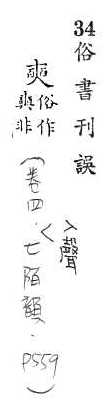 34俗書刊誤
入聲
奭俗作
非
(卷四.七陌韻.P559)